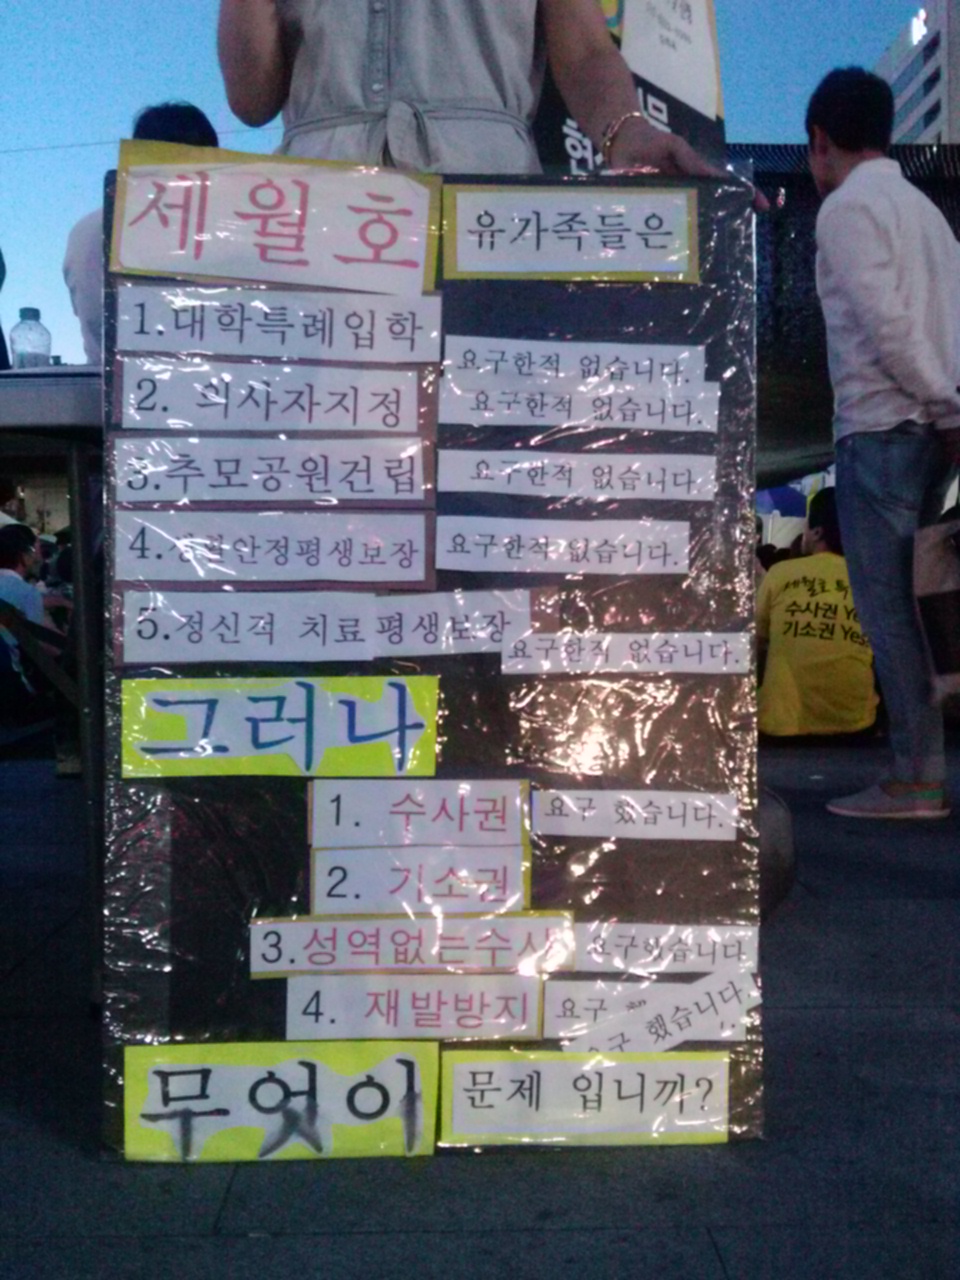 세월호 유가족들은
1.대학특례입학 요구한적 없습니다.
2. 의사자지정 요구한적 없습니다.
3.추모공원건립 요구한적 없습니다.
4.생활안정평생보장 요구한적 없습니다.
5.정신적 치료평생보장 요구한적 없습니다.
그러나
1. 수사권 요구 했습니다.
2. 기소권
3.성역없는수사 요구했습니다
4. 재발방지 요구
구 했습니다.
무엇이 문제 입니까?
세월호 특
수사권 Yes
기소권 Yes